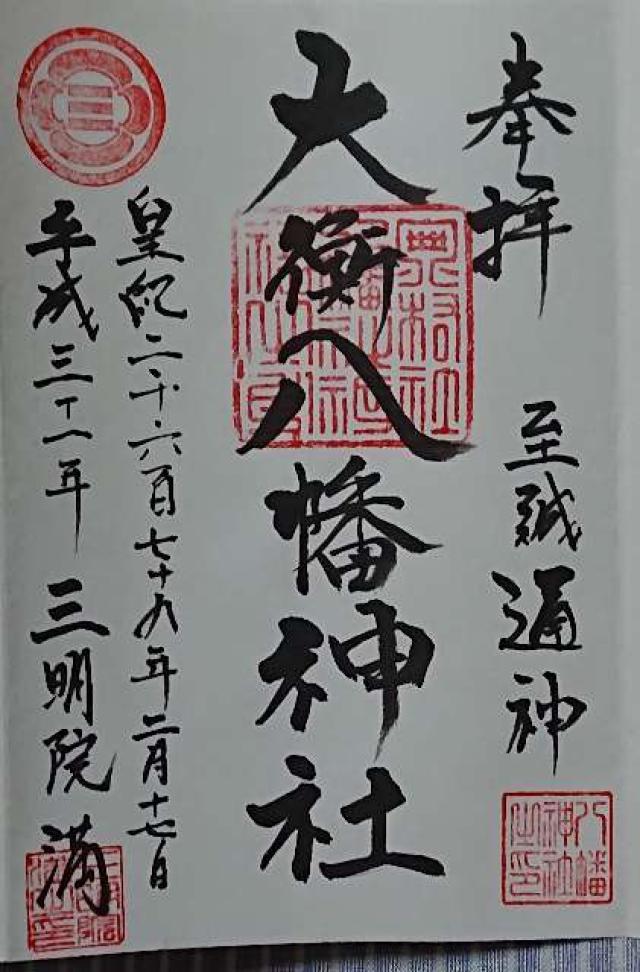 奉拝
至誠通神
八幡神社之印
大衡八幡神社
皇紀二千六百七十九年二月十七日
平成三十一年 三明院 満